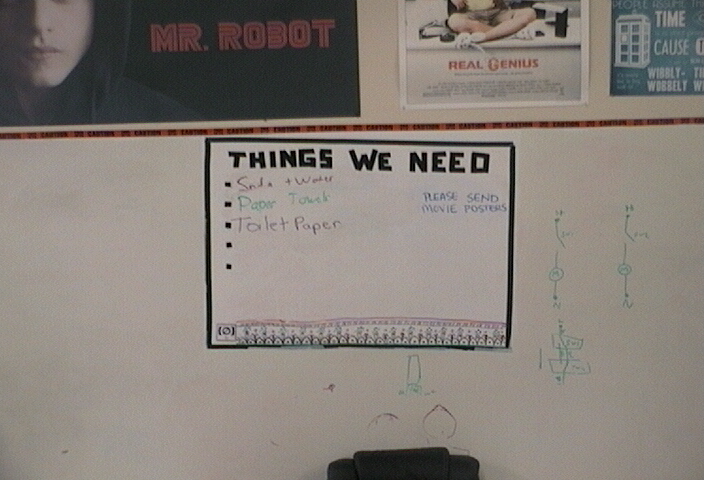 MR. ROBOT
REAL GENIUS
PEOPLE ASSUME
TIME
CAUSE
WIBBLY-
WOBBELY
CAUTION CAUTION CAUTION CAUTION CAUTION CAUTION
THINGS WE NEED
Soda + Water
Paper Towels
Toilet Paper
PLEASE SEND
MOVIE POSTERS